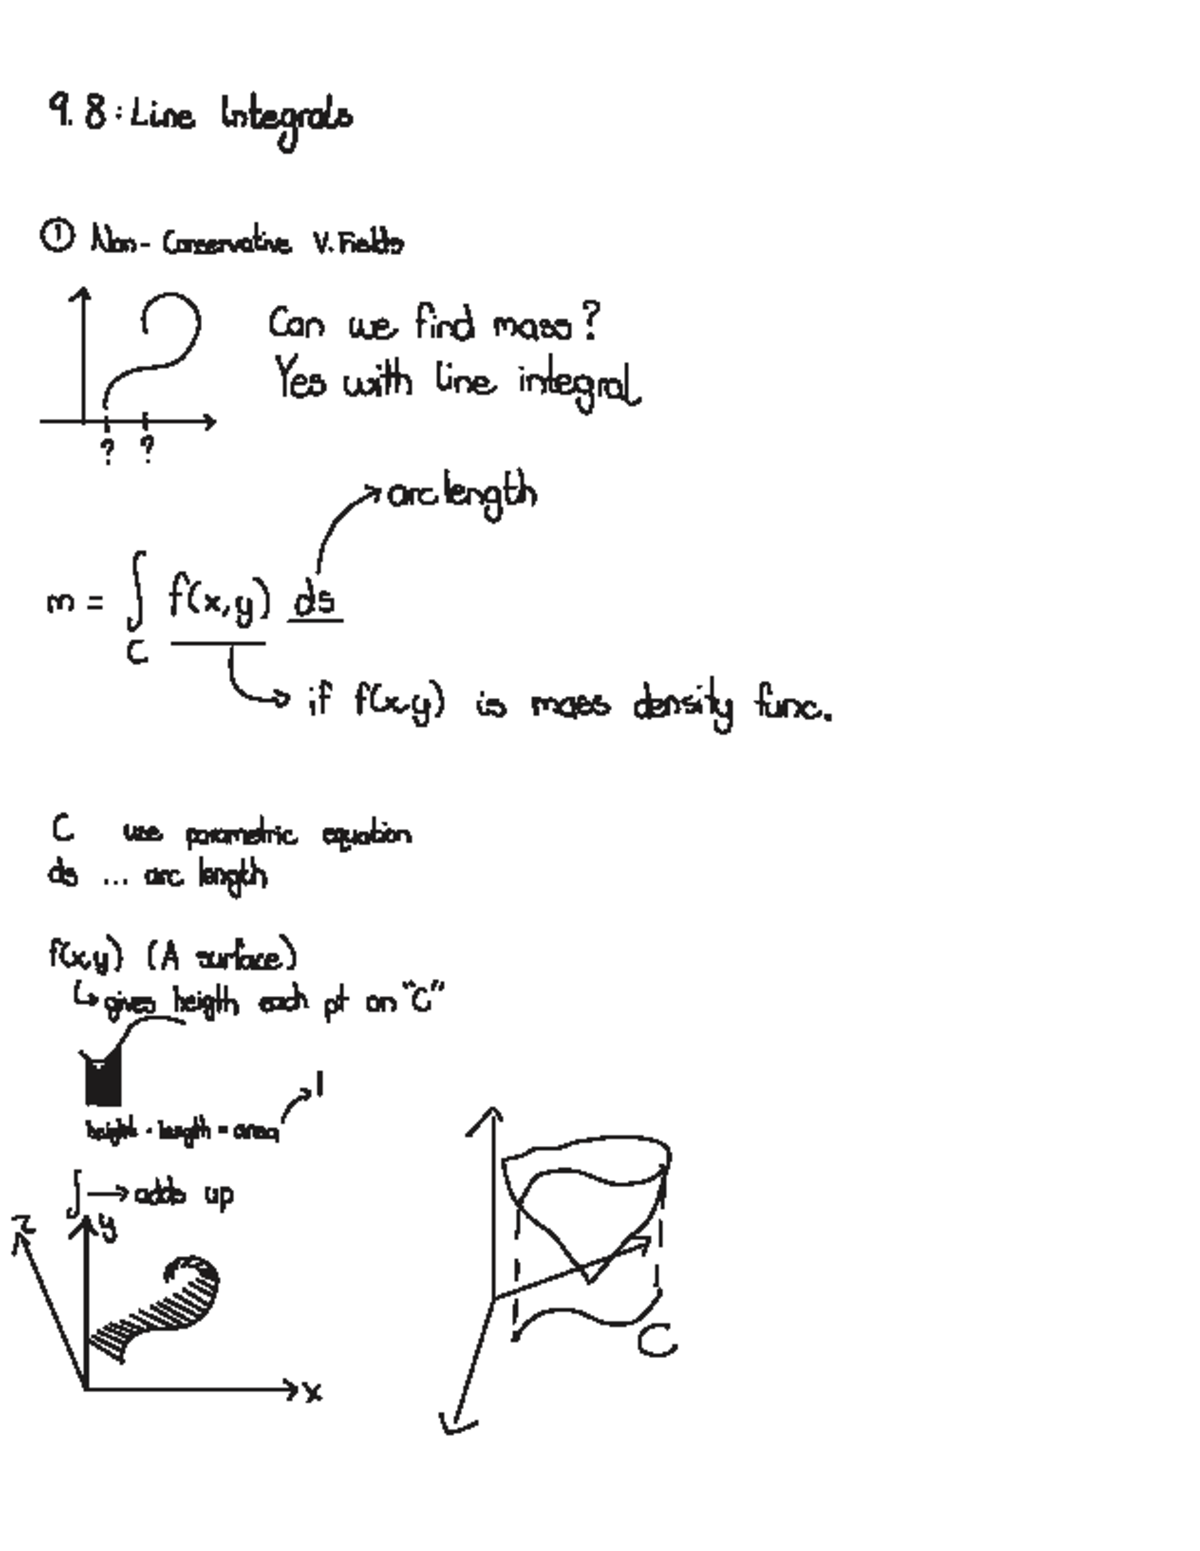 9.8: Line Integrals
① Non-Conservative V. Fields
Can we find mass?
Yes with line integral
? ?
arc length
m = ∫ f(x,y) ds
C
if f(x,y) is mass density func.
C use parametric equation
ds ... arc length
f(x,y) (A surface)
↳ gives heigth each pt on "C"
1
height · length = area
∫ → adds up
z y
x
C